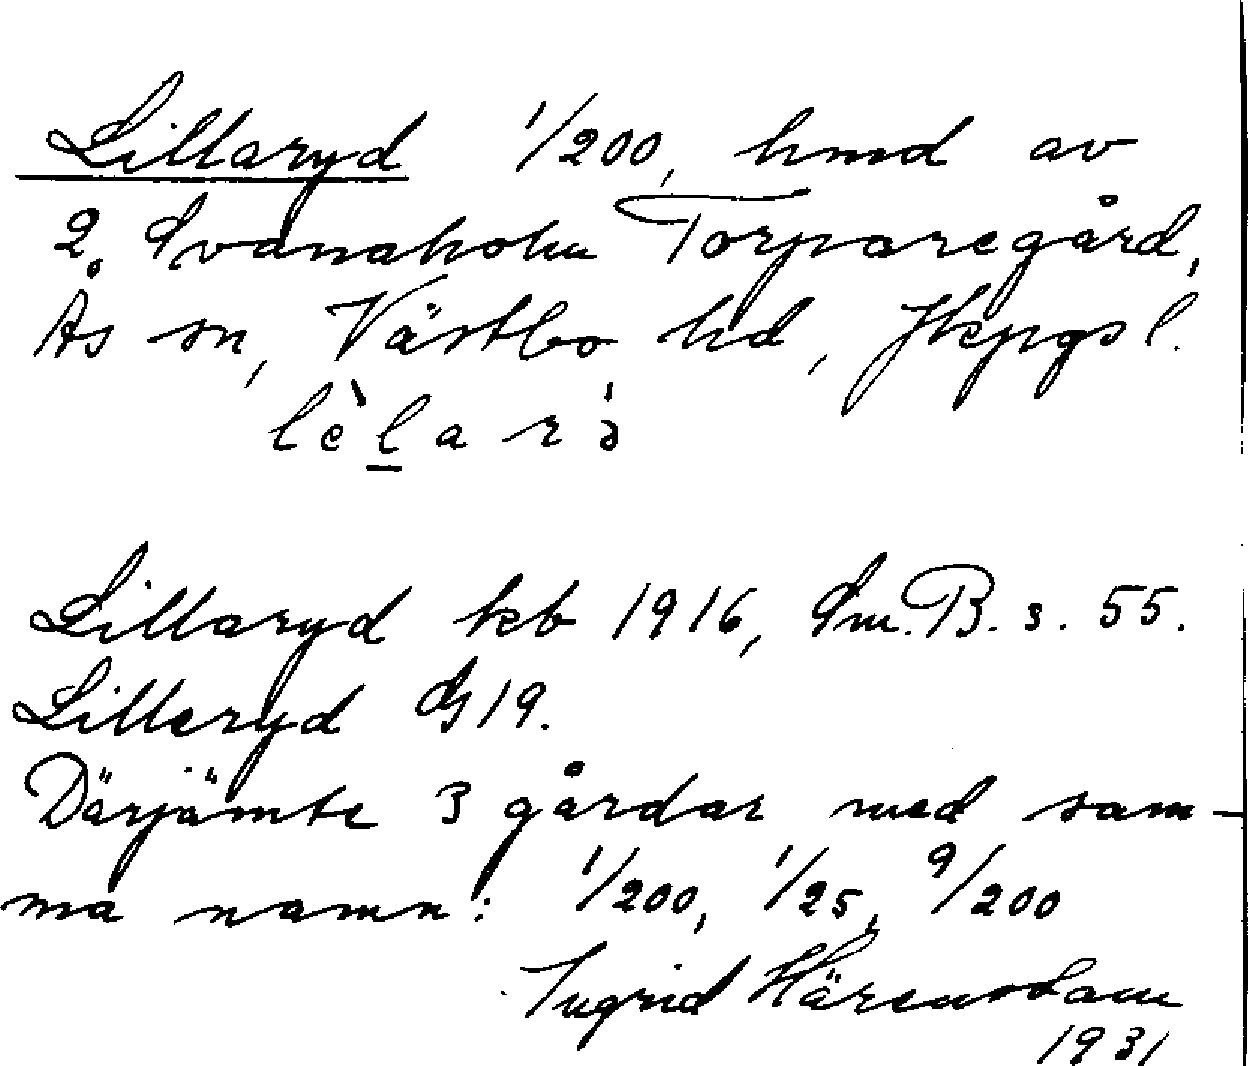 Lillaryd 1/200, hmd av
2. Svanaholm Torparegård,
Ås sn, Västbo hd, Jkpgs l.
lèlarə̀
Lillaryd kb 1916, Sm.B. s. 55.
Lilleryd GJ 19.
Därjämte 3 gårdar med sam-
ma namn: 1/200, 1/25, 9/200
Ingrid Härenstam
1931